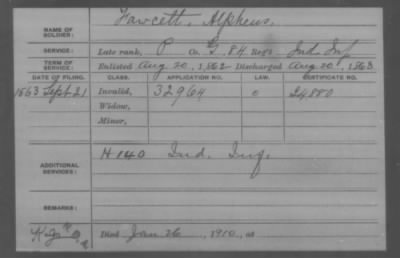 NAME OF SOLDIER: Fawcett, Alpheus,
SERVICE: Late rank, P Co. G, 84 Reg't Ind. Inf
TERM OF SERVICE: Enlisted Aug 20, 1862 Discharged Aug 20, 1863
DATE OF FILING. CLASS. APPLICATION NO. LAW. CERTIFICATE NO.
1863 Sept 21 Invalid, 32964 24880
Widow,
Minor,
ADDITIONAL SERVICES: H 140 Ind. Inf.
REMARKS:
Died Jan 26, 1910, at